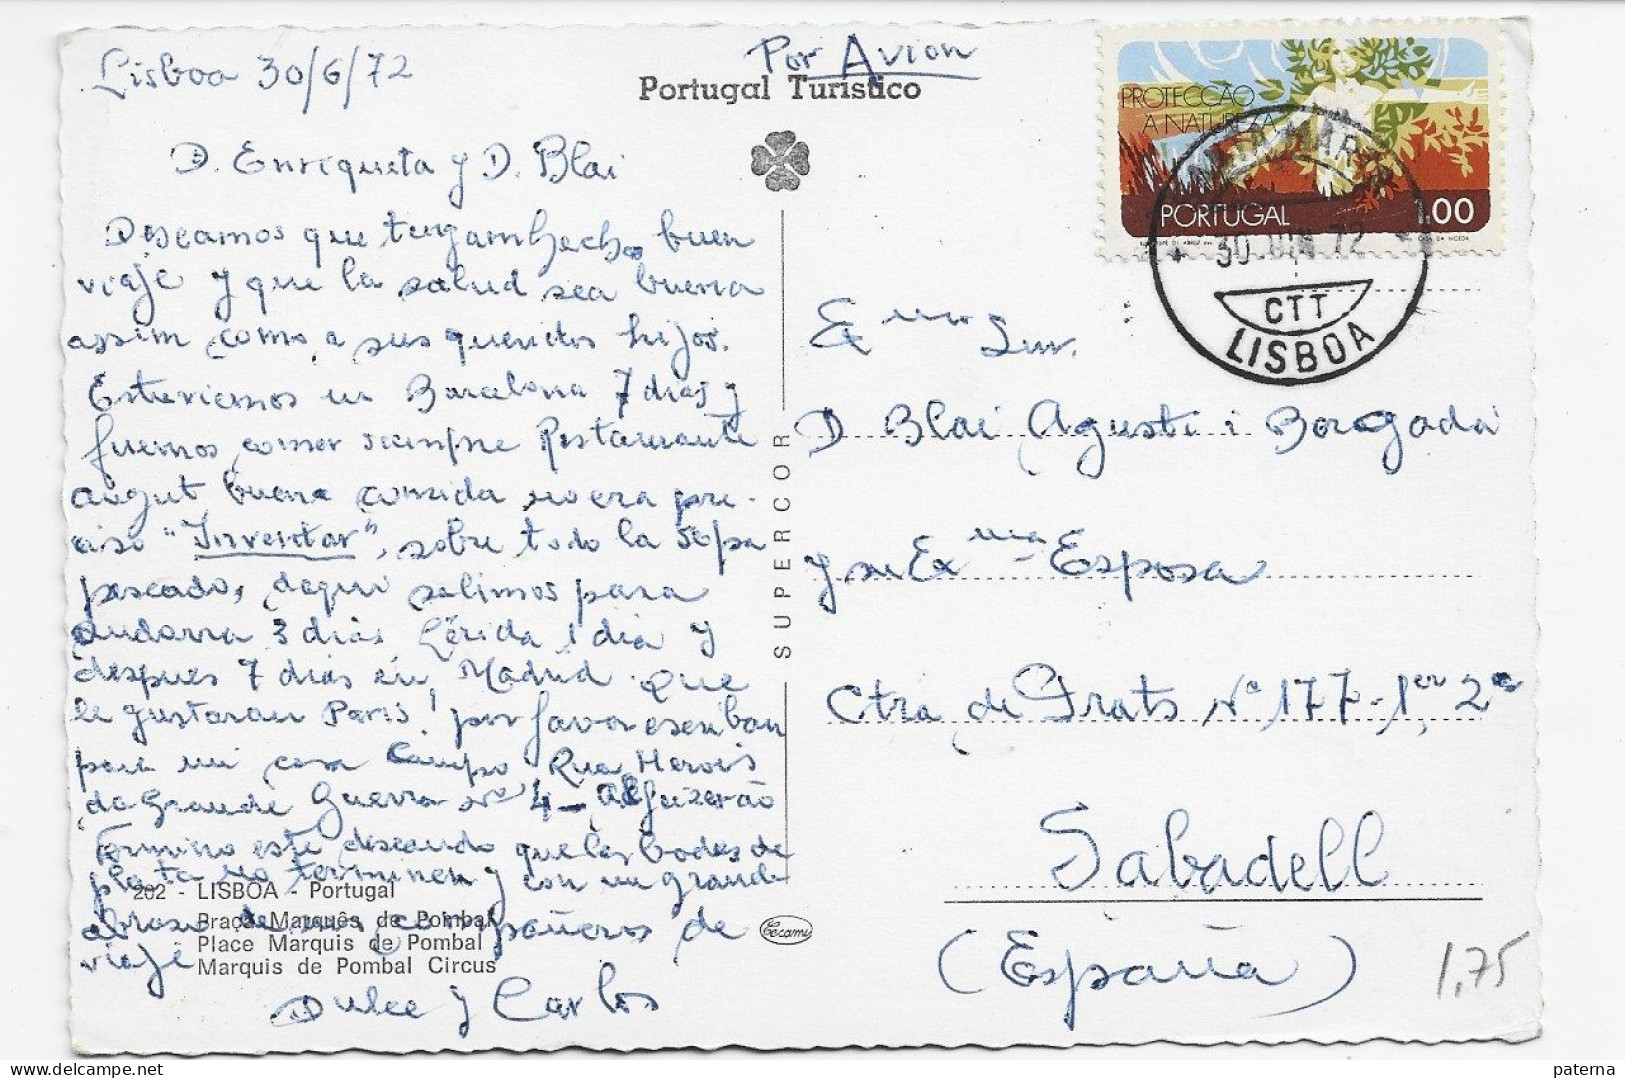 Lisboa 30/6/72
Por Avion
Portugal Turístico
D. Enriqueta y D. Blai
Deseamos que tengam hecho buen
viaje y que la salud sea buena
assim como a sus queridos hijos.
Estuviemos en Barcelona 7 dias y
fuemos comer siempre Restaurante
august buena comida no era pre-
ciso "Inventar", sobre todo la sopa
pescado, dequi salimos para
andorra 3 dias Lérida 1 dia y
despues 7 dias en Madrid. Que
le gustaran Paris! por favor escriban
para mi casa Campo Rua Herois
da Grande Guerra Nº 4 - Alfuzerão
Termino este deseando que las bodas de
plata no terminen y con un grande
abraso de sus compañeros de
viaje
Dulce y Carlos
202 - LISBOA - Portugal
Praça Marquês de Pombal
Place Marquis de Pombal
Marquis de Pombal Circus
SUPERCOR
Cecami
PROTECÇÃO
A NATUREZA
PORTUGAL 1,00
CASA DA MOEDA
30 JUN 72
CTT
LISBOA
Exmo Snr.
D Blai Agusti i Borgada
y su Exma Esposa
Ctra de Prats Nº 177-1er 2ª
Sabadell
(España)
1,75
paterna